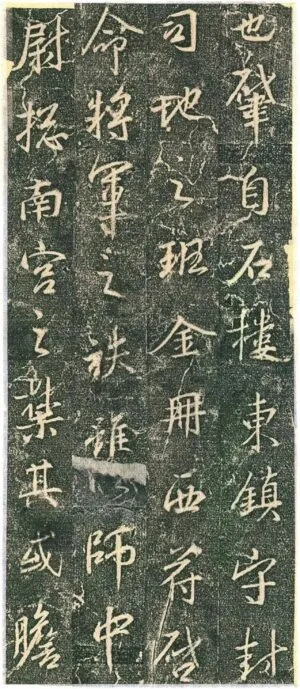 也肇自石樓東鎮守封
司地之班金冊西符啓
命將軍之秩雖師中
尉揔南宮之其或瞻